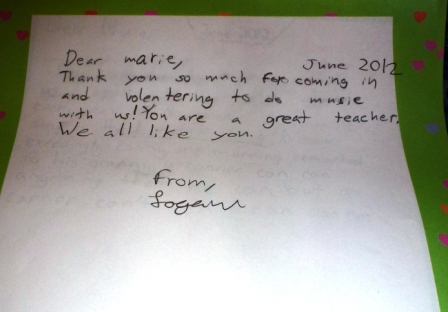 Dear marie,
June 2012
Thank you so much for coming in
and volentering to do music
with us! You are a great teacher.
We all like you.
From,
Logan